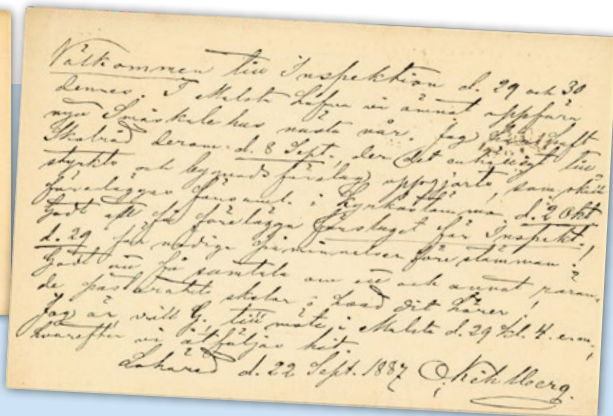 Välkommen till Inspektion d. 29 och 30
dennes. I Malsta hafva vi ämnat uppföra
nya Småskolehus nästa vår. Jag haft
Skolråd derom d. 8 Sept., der det enhälligt till-
styrkts och byggnadsförslag uppgjorts, som skall
föreläggas församl. i Kyrkostämma d. 2 Okt.
Godt att få förelägga förslaget för Inspekt.
d. 29 för nödige påminnelser före stämman!
Godt nu få samtala om ett och annat rörande
de pastorats skolor, hvad dit hörer!
Jag är vill G. till möte i Malsta d. 29 kl. 4 e.m.,
hvarefter vi åtföljas hit.
d. 22 Sept. 1887